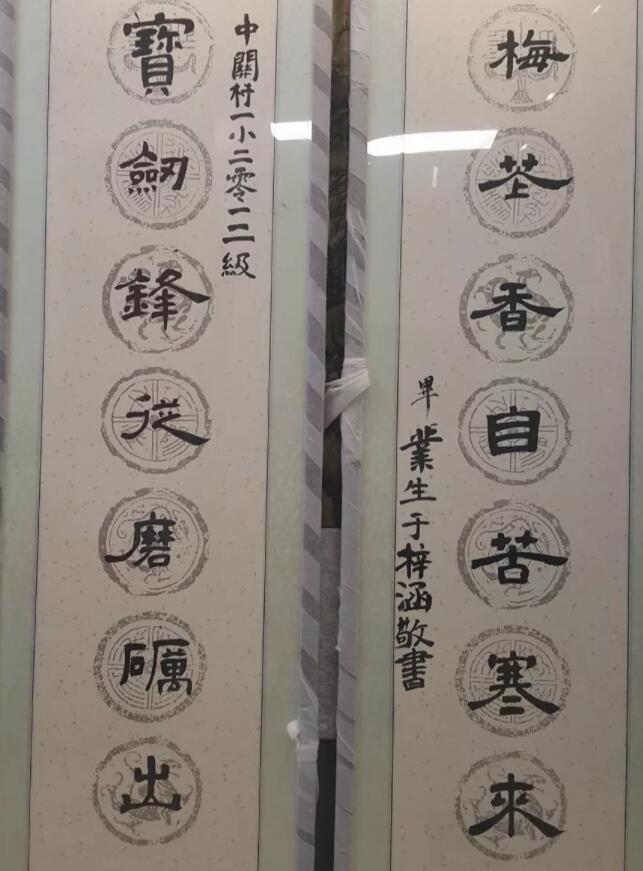 寶劒鋒從磨礪出
中關村一小二零一二級
梅花香自苦寒來
畢業生于梓涵敬書